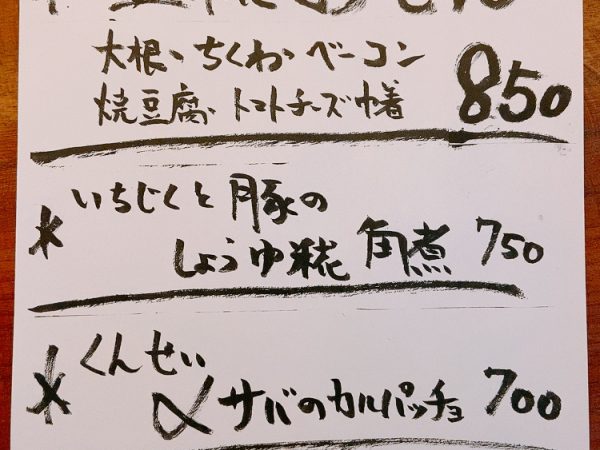 大根、ちくわ、ベーコン
焼豆腐、トマトチーズ巾着 850
* いちじくと豚の
しょうゆ糀 角煮 750
* くんせい
〆サバのカルパッチョ 700